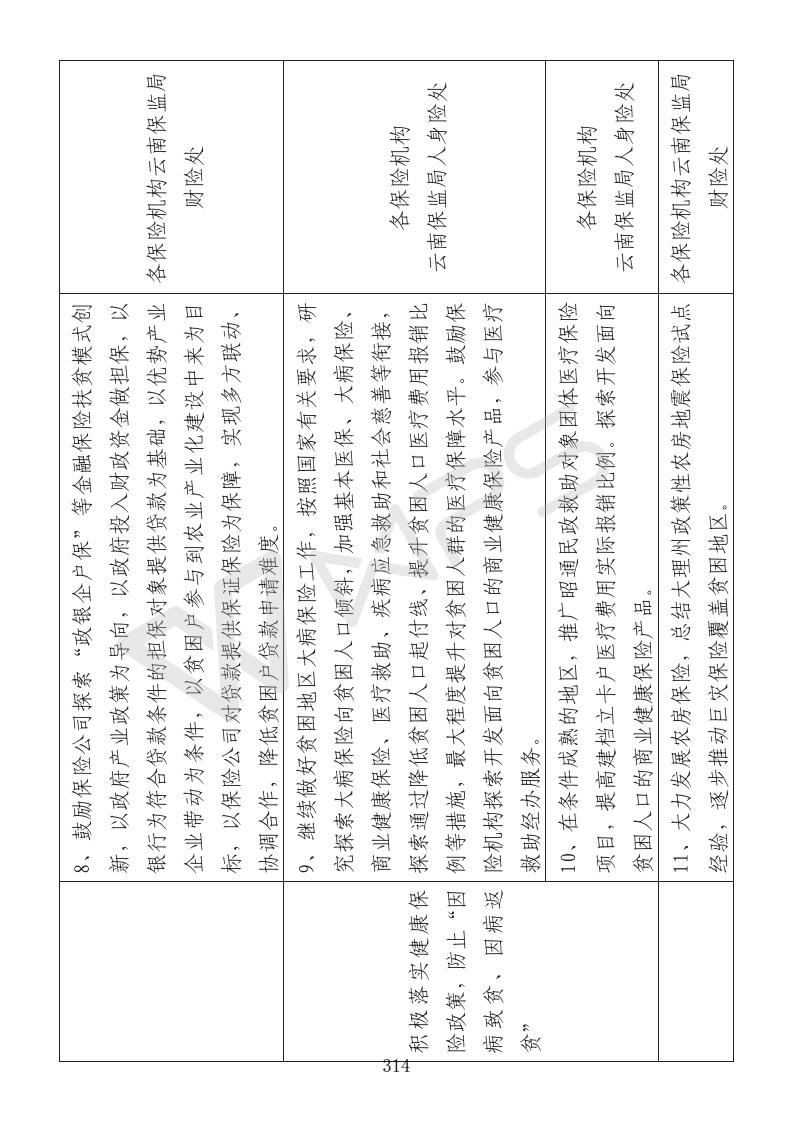 8、鼓励保险公司探索“政银企户保”等金融保险扶贫模式创
新，以政府产业政策为导向，以政府投入财政资金做担保，以
银行为符合贷款条件的担保对象提供贷款为基础，以优势产业
企业带动为条件，以贫困户参与到农业产业化建设中来为目
标，以保险公司对贷款提供保证保险为保障，实现多方联动、
协调合作，降低贫困户贷款申请难度。
各保险机构云南保监局
财险处
积极落实健康保
险政策，防止“因
病致贫、因病返
贫”
9、继续做好贫困地区大病保险工作，按照国家有关要求，研
究探索大病保险向贫困人口倾斜，加强基本医保、大病保险、
商业健康保险、医疗救助、疾病应急救助和社会慈善等衔接，
探索通过降低贫困人口起付线、提升贫困人口医疗费用报销比
例等措施，最大程度提升对贫困人群的医疗保障水平。鼓励保
险机构探索开发面向贫困人口的商业健康保险产品，参与医疗
救助经办服务。
各保险机构
云南保监局人身险处
10、在条件成熟的地区，推广昭通民政救助对象团体医疗保险
项目，提高建档立卡户医疗费用实际报销比例。探索开发面向
贫困人口的商业健康保险产品。
各保险机构
云南保监局人身险处
11、大力发展农房保险，总结大理州政策性农房地震保险试点
经验，逐步推动巨灾保险覆盖贫困地区。
各保险机构云南保监局
财险处
314